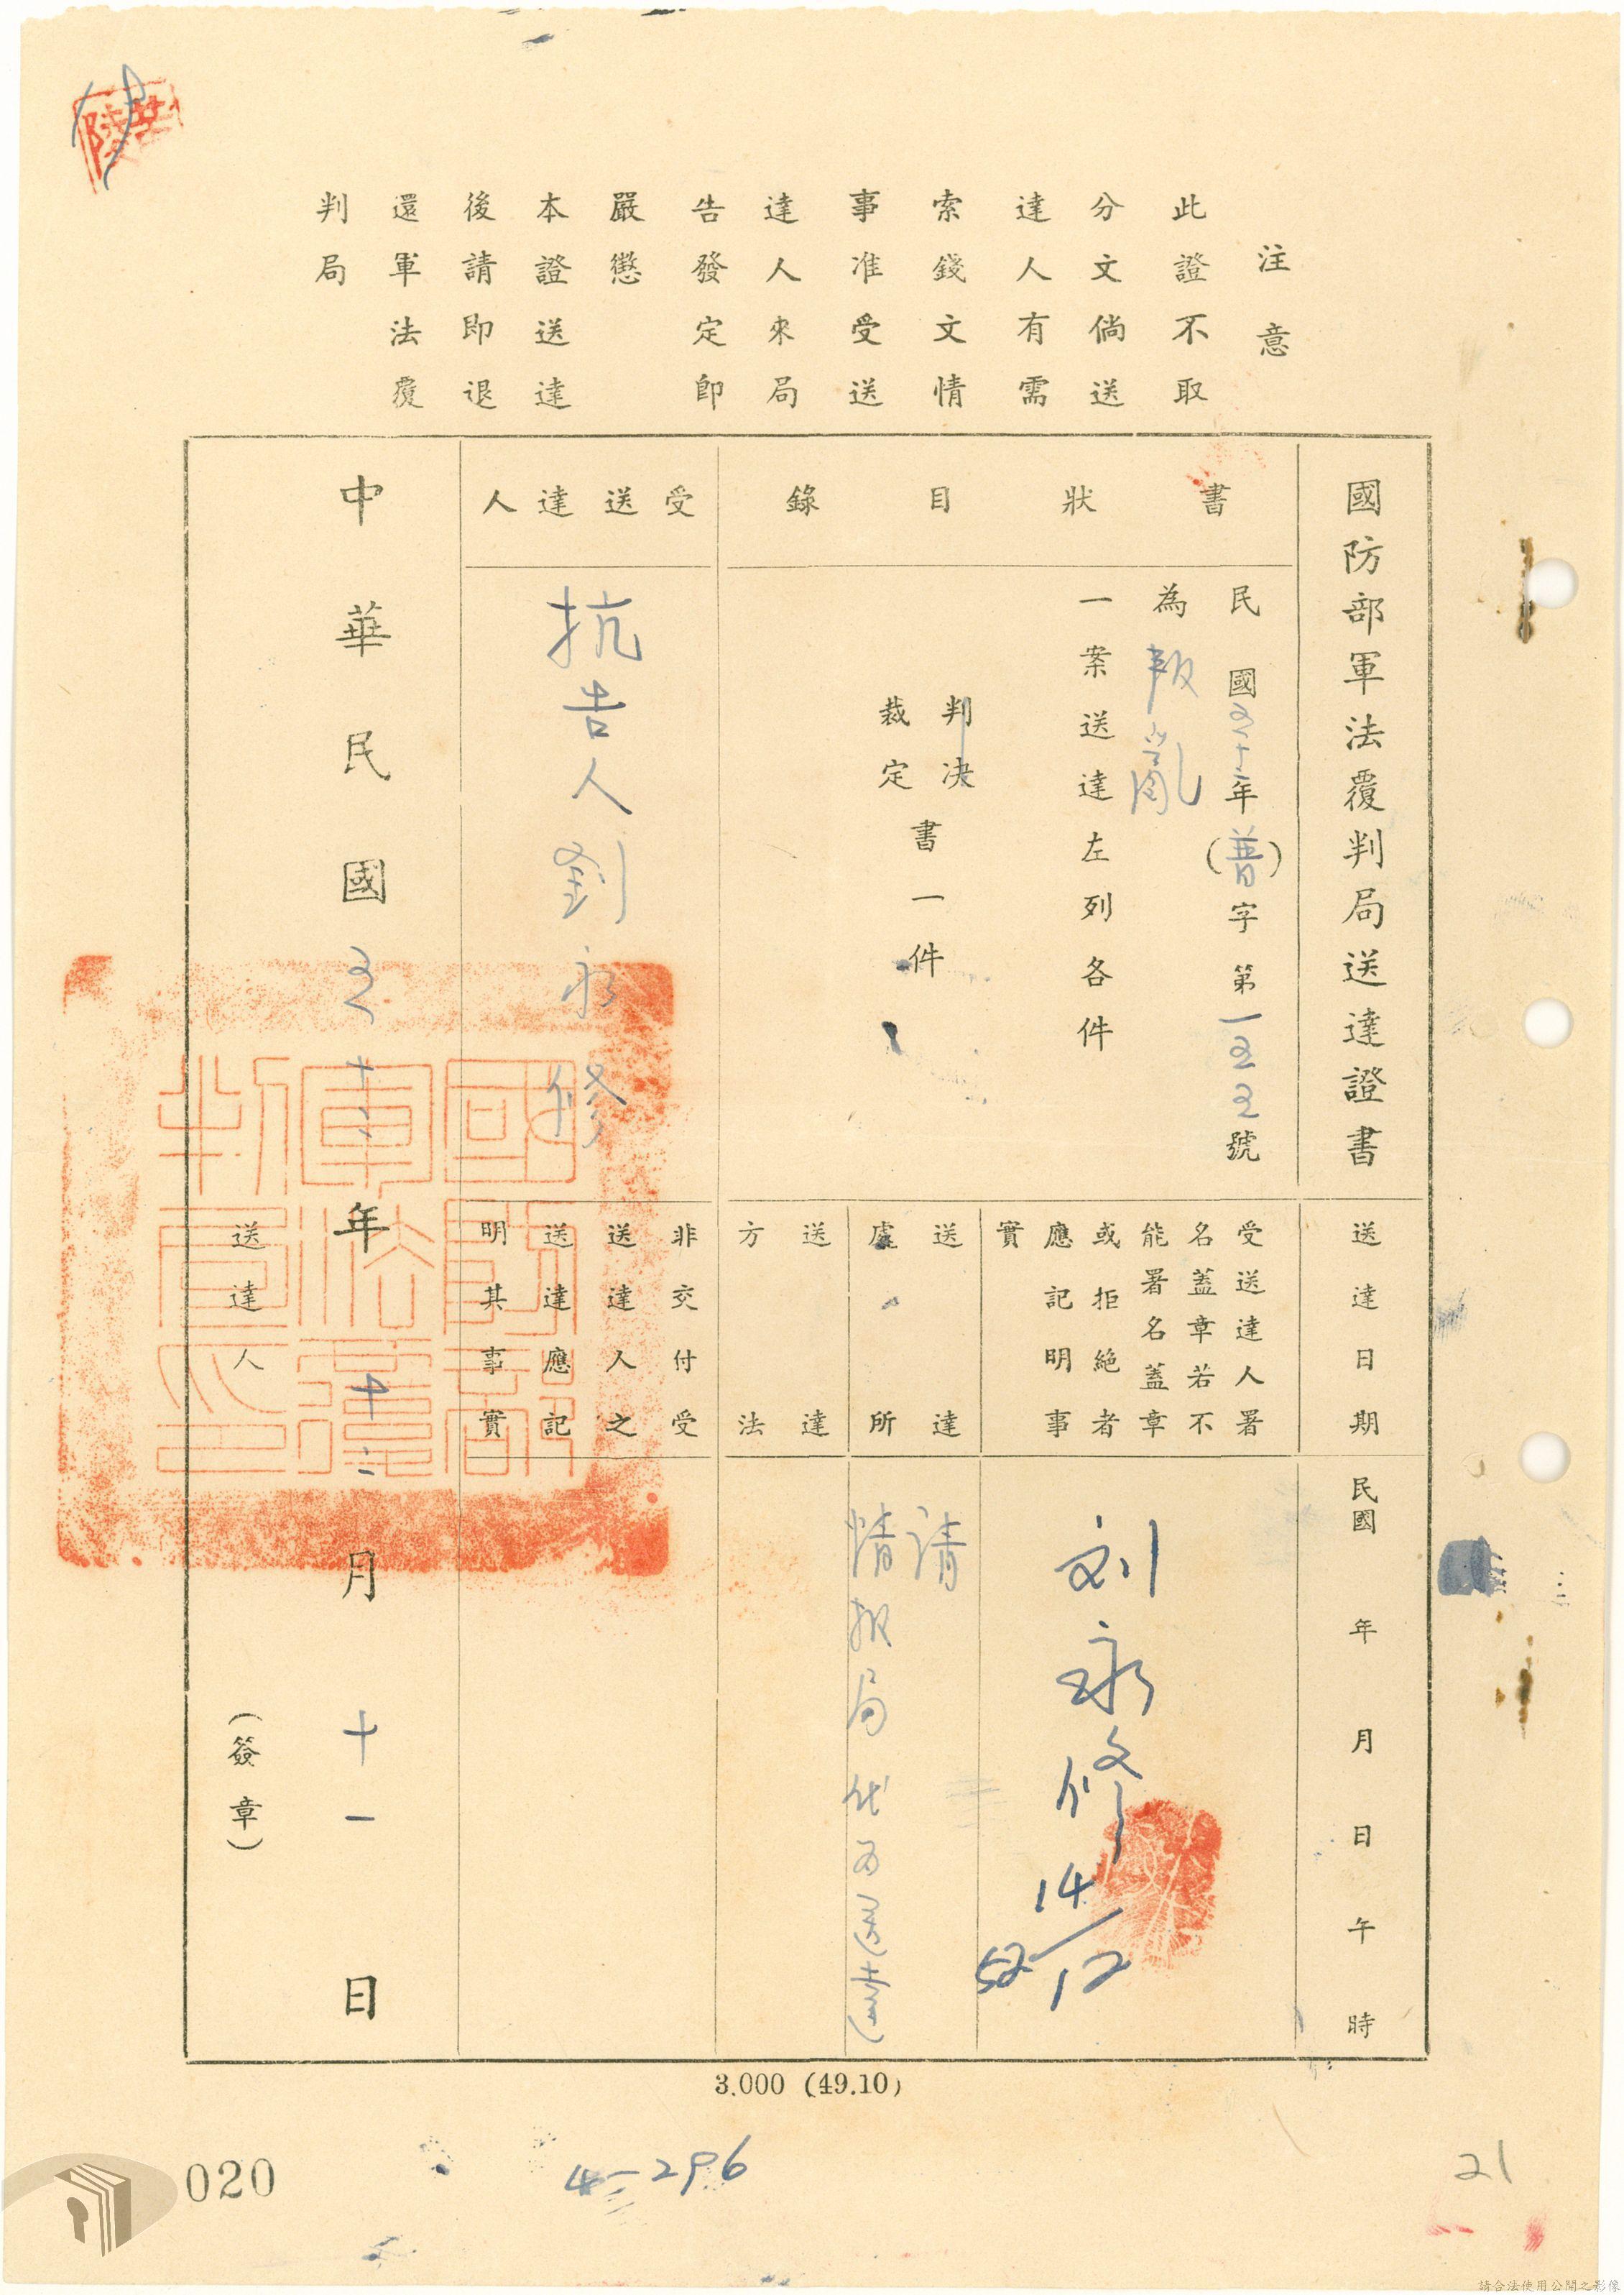 注意
此證不取
分文倘送
達人有需
索錢文情
事准受送
達人來局
告發定卽
嚴懲
本證送達
後請即退
還軍法覆
判局
國防部軍法覆判局送達證書
書狀目錄
民國五十二年(普)字第一五五號
為叛亂
一案送達左列各件
判決
裁定
書一件
受送達人
抗告人劉永修
送達日期
民國 年 月 日 午 時
受送達人署
名蓋章若不
能署名蓋章
或拒絶者
應記明事
實
刘永修
14/12
52
送達
處所
請
情報局代為送達
送達
方法
非交付受
送達人之
送達應記
明其事實
中華民國五十二年十二月十一日
送達人
(簽章)
國防部軍法覆判局印
3.000 (49.10)
020
4-296
21
請合法使用公開之影像